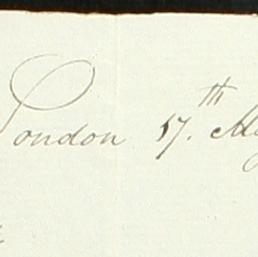 London 17.th